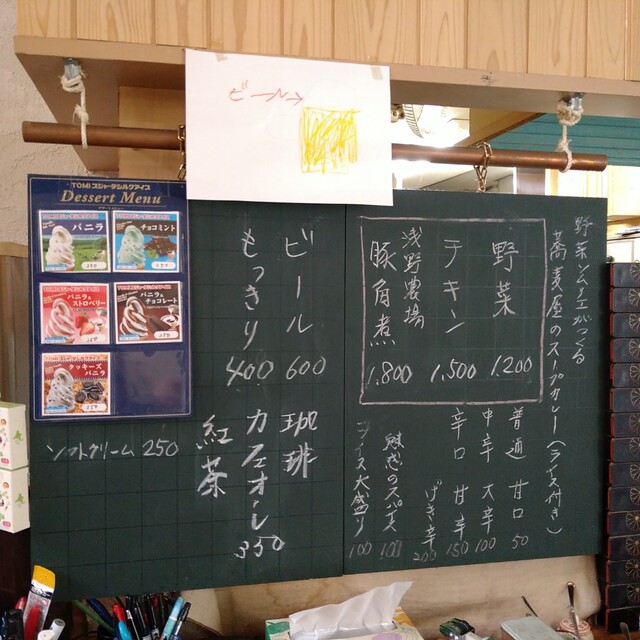 ビール→
TOMI スジャータシルクアイス
Dessert Menu
バニラ
チョコミント
バニラ&ストロベリー
バニラ&チョコレート
クッキーズバニラ
ソフトクリーム 250
野菜ソムリエがつくる
蕎麦屋のスープカレー(ライス付き)
野菜 1.200
チキン 1,500
浅野農場
豚角煮 1.800
普通 甘口 50
中辛 大辛 100
辛口 甘辛 150
げき辛 200
魅惑のスパイス 100
ライス大盛り 100
ビール 600
もっきり 400
珈琲
カフェオレ 350
紅茶